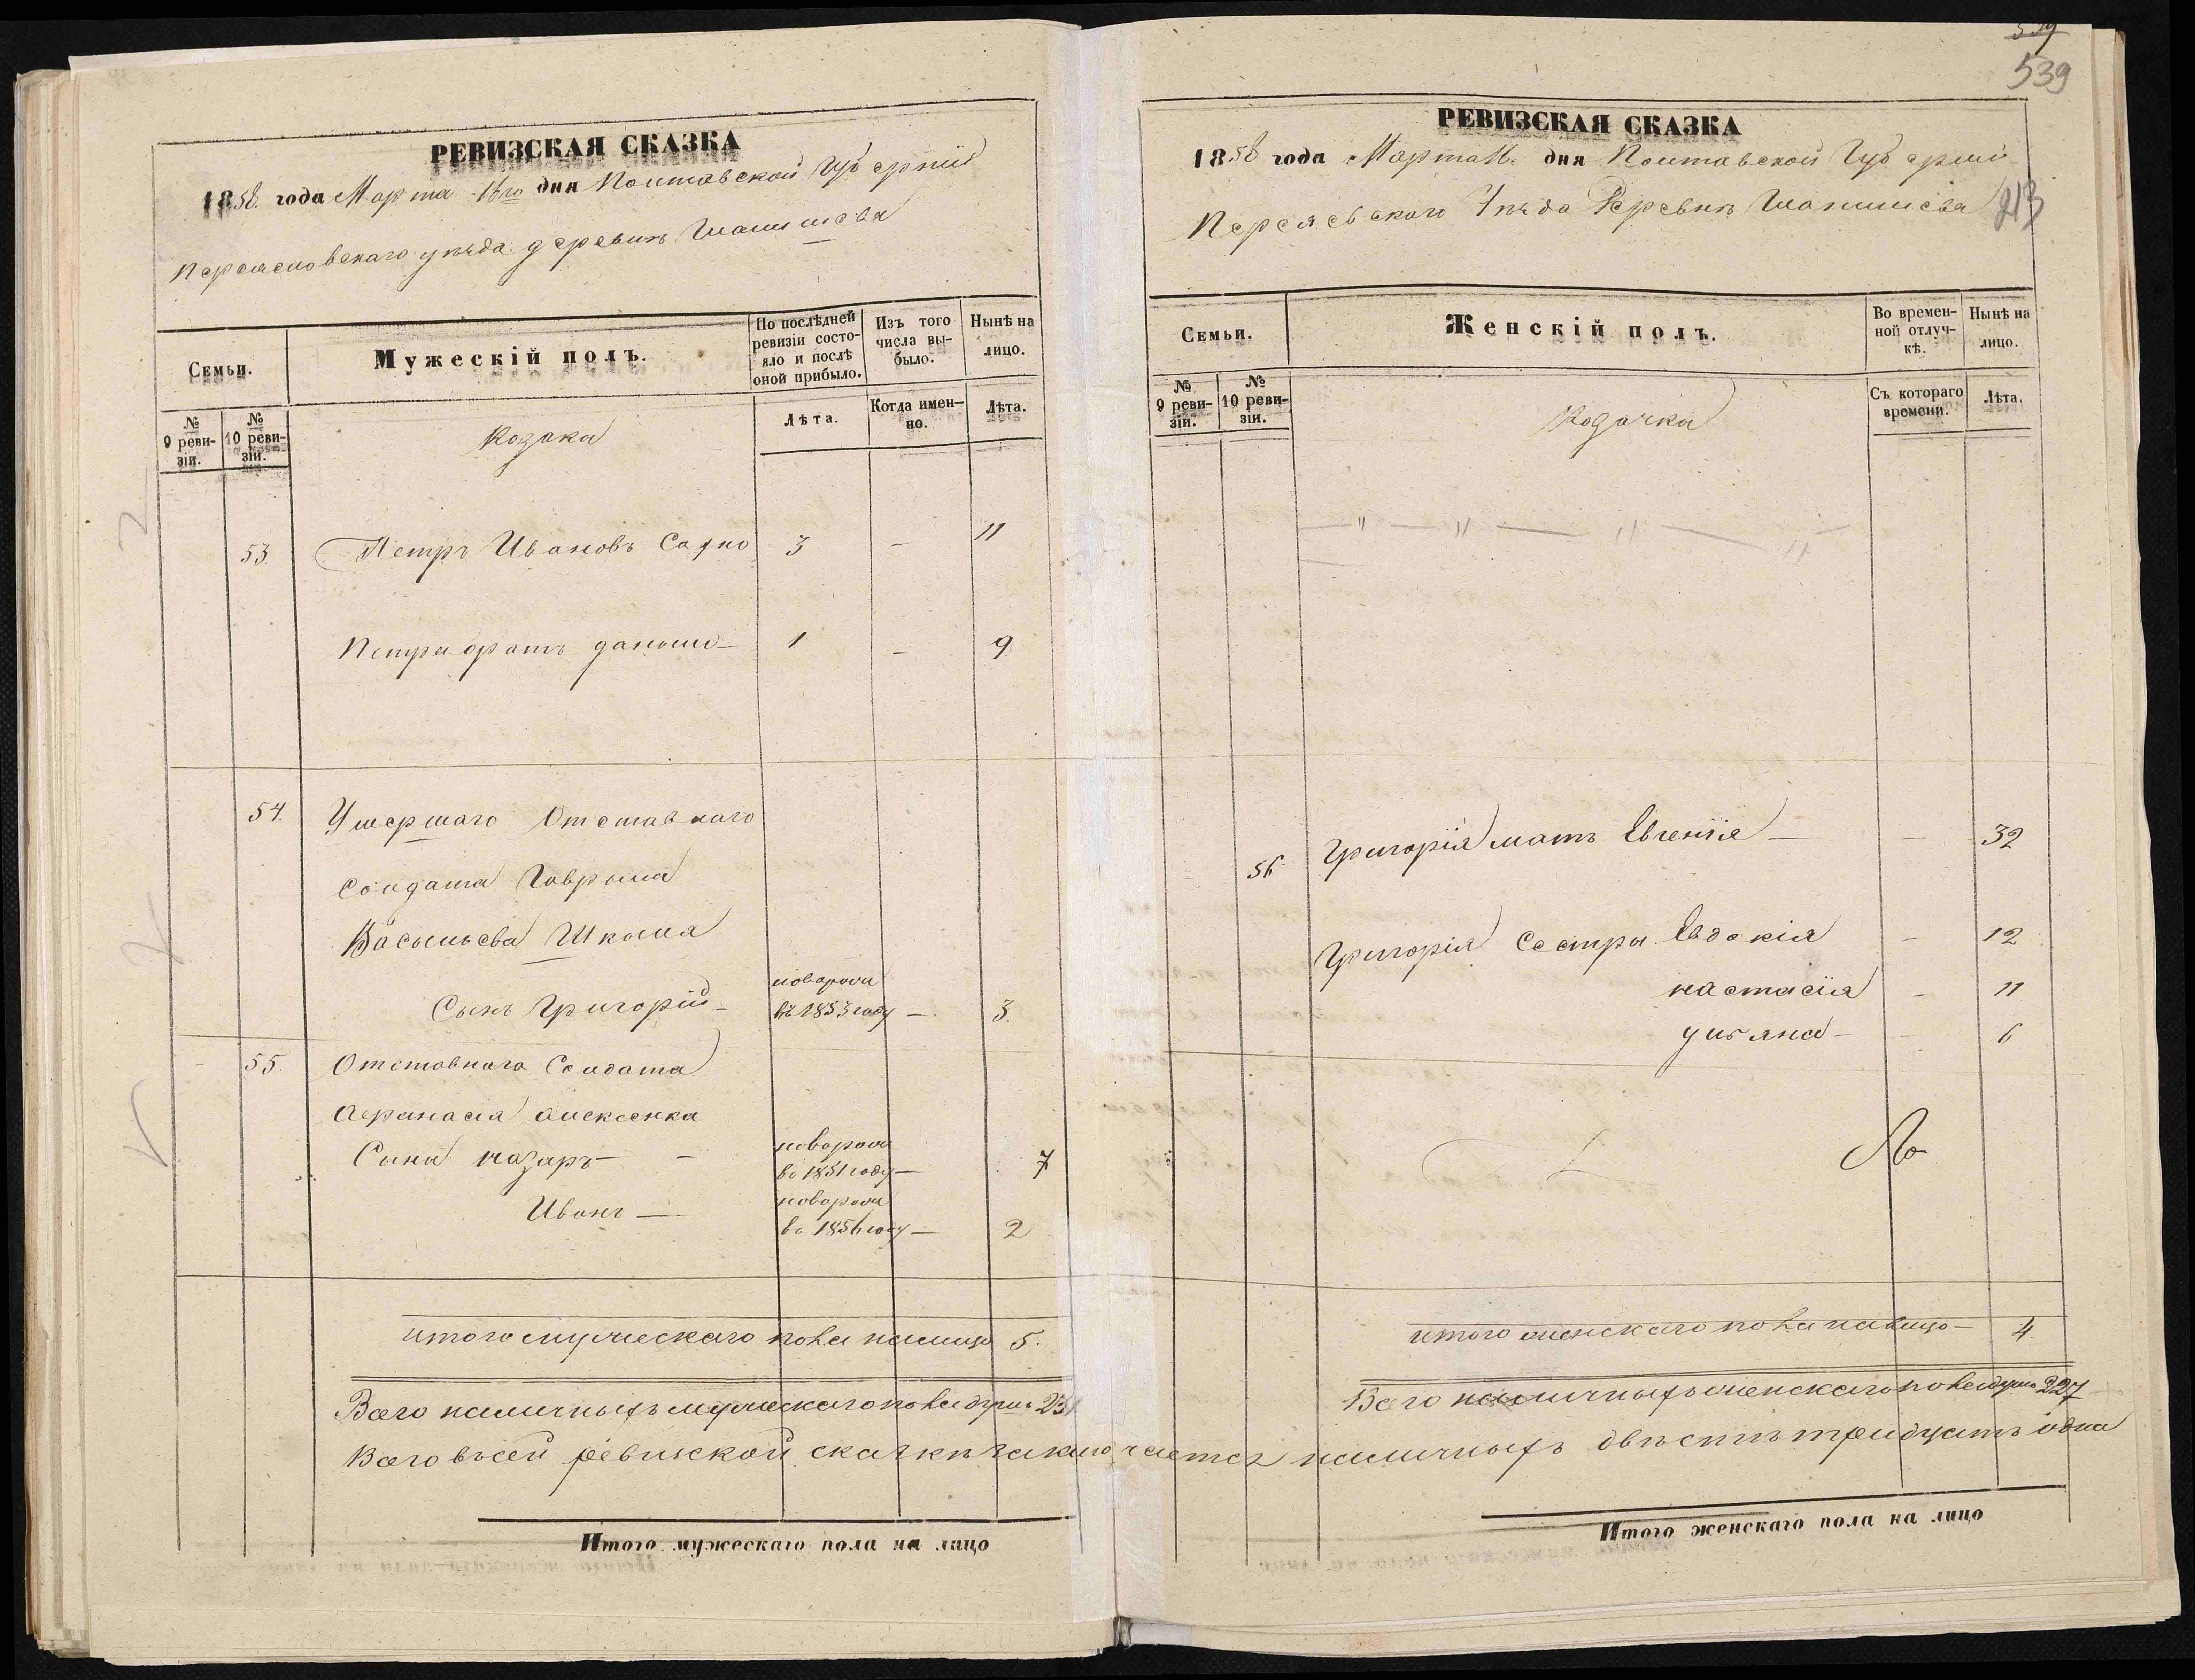 539
539
РЕВИЗСКАЯ СКАЗКА
1858 года Марта 16го дня Полтавской Губерніи
Переясловскаго уѣзда деревни
Семьи.
Мужескій полъ.
По послѣдней ревизіи состояло и послѣ оной прибыло.
Изъ того числа выбыло.
Нынѣ на лицо.
№ 9 ревизіи.
№ 10 ревизіи.
Козаки
Лѣта.
Когда именно.
Лѣта.
53. Петръ Ивановъ 3 — 11
Петра братъ Данило — 1 — 9
54. Умершаго Отставнаго
Солдата Гаврила
Васильева Шкыла
Сынъ Григорій — новорож въ 1853 году — 3.
55. Отставнаго Солдата
Афанасія Алексѣенка
Сыни Назаръ — — новорож въ 1851 году — 7
Иванъ — новорож въ 1856 году — 2
итого мужескаго пола налицо 5.
Всего наличныхъ мужескаго пола душъ 231
РЕВИЗСКАЯ СКАЗКА
1858 года Марта 16 дня Полтавской Губерніи
Уѣзда Деревни
213
Семьи.
Женскій полъ.
Во временной отлучкѣ.
Нынѣ на лицо.
№ 9 ревизіи.
№ 10 ревизіи.
Козачки
Съ котораго времени.
Лѣта.
— " — " — " — " —
Григорія мать Евгенія — — 32
Григорія Сестры Евдокія — 12
Настасія — 11
Уляна — — 6
итого женскаго пола налицо — 4.
Всего наличныхъ женскаго пола душъ 227
Всего въ сей ревизской сказкѣ заключается наличныхъ двѣсти тридцать одна
Итого мужескаго пола на лицо
Итого женскаго пола на лицо